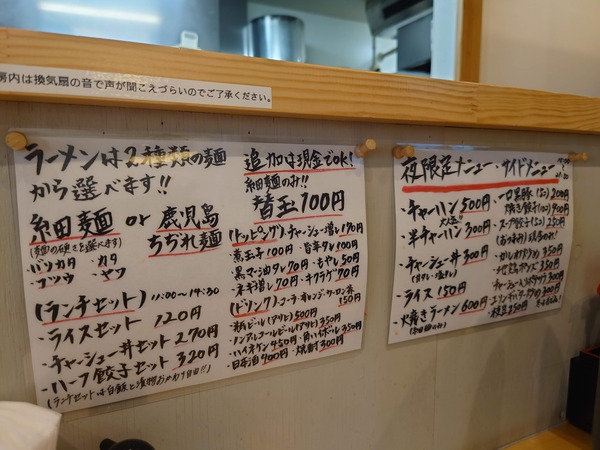 房内は換気扇の音で声が聞こえづらいのでご了承ください。
ラーメンは2種類の麺
から選べます!!
細麺 or 鹿児島
ちぢれ麺
(麺の硬さを選べます)
・バリカタ ・カタ
・フツウ ・ヤワ
(ランチセット) 11:00~14:30
・ライスセット 120円
・チャーシュー丼セット 270円
・ハーフ餃子セット 320円
(ランチセットは白飯と漬物おかわり自由!!)
追加は現金でOK!
細麺のみ!!
替玉100円
(トッピング)チャーシュー増し190円
煮玉子100円 ・旨辛タレ100円
黒マー油タレ70円 ・もやし50円
ネギ増し70円 ・キクラゲ70円
(ドリンク)コーラ・オレンジ・ウーロン茶
150円
・瓶ビール(アサヒ)500円
・ノンアルコールビール(アサヒ)350円
・ハイネケン450円 ・角ハイボール350円
・日本酒400円 ・焼酎300円
夜限定メニュー・サイドメニュー
・チャーハン500円
・半チャーハン300円
・チャーシュー丼300円
・ライス150円
・火焼きラーメン600円
・スープ餃子(5コ)250円
・枝豆250円